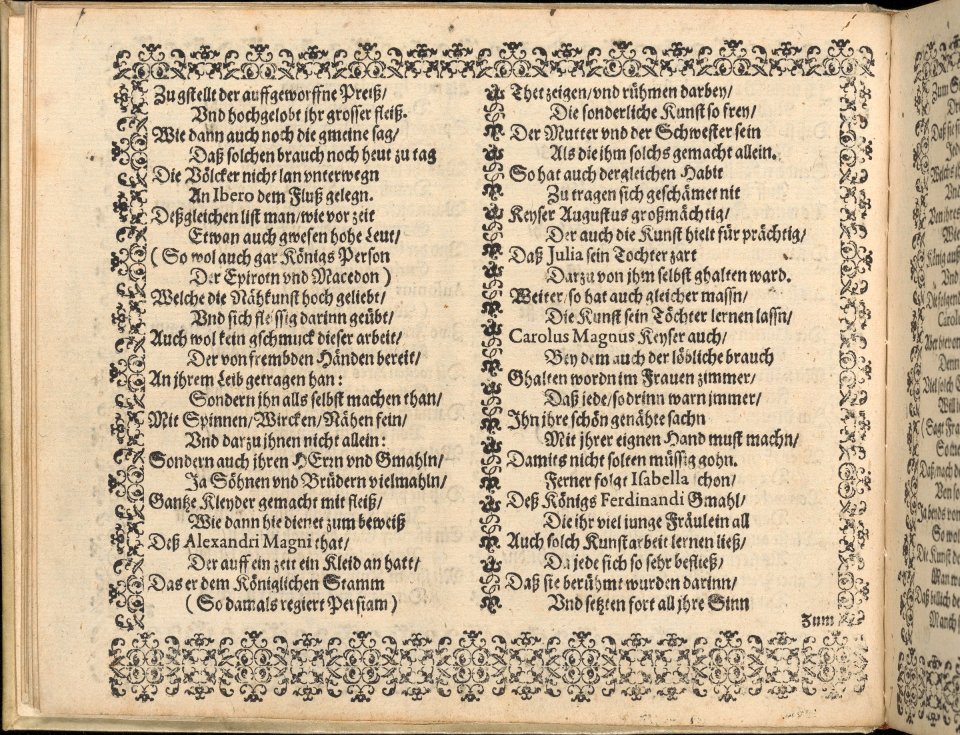 Zu gstellt der auffgeworffne Preiß/
Vnd hochgelobt ihr grosser fleiß.
Wie dann auch noch die gmeine sag/
Daß solchen brauch noch heut zu tag
Die Völcker nicht lan vnterwegn
An Ibero dem Fluß gelegn.
Deßgleichen list man/wie vor zeit
Etwan auch gwesen hohe Leut/
(So wol auch gar Königs Person
Der Epirotn vnd Macedon)
Welche die Nähkunst hoch geliebt/
Vnd sich fleissig darinn geübt/
Auch wol kein gschmuck dieser arbeit/
Der von frembden Händen bereit/
An ihrem Leib getragen han:
Sondern ihn alls selbst machen than/
Mit Spinnen/Wircken/Nähen fein/
Vnd darzu ihnen nicht allein:
Sondern auch ihren HErrn vnd Gmahln/
Ja Söhnen vnd Brüdern vielmahln/
Gantze Kleyder gemacht mit fleiß/
Wie dann hie dienet zum beweiß
Deß Alexandri Magni that/
Der auff ein zeit ein Kleid an hatt/
Das er dem Königlichen Stamm
(So damals regiert Persiam)
Thet zeigen/vnd rühmen darbey/
Die sonderliche Kunst so frey/
Der Mutter vnd der Schwester sein
Als die ihm solchs gemacht allein.
So hat auch dergleichen Habit
Zu tragen sich geschämet nit
Keyser Augustus großmächtig/
Der auch die Kunst hielt für prächtig/
Daß Julia sein Tochter zart
Darzu von ihm selbst ghalten ward.
Weiter/so hat auch gleicher massn/
Die Kunst sein Töchter lernen lassn/
Carolus Magnus Keyser auch/
Bey dem auch der löbliche brauch
Ghalten wordn im Frauen zimmer/
Daß jede/so drinn warn immer/
Ihn ihre schön genähte sachn
Mit jhrer eignen Hand must machn/
Damits nicht solten müssig gohn.
Ferner folgt Isabella schon/
Deß Königs Ferdinandi Gmahl/
Die ihr viel junge Fräulein all
Auch solch Kunstarbeit lernen ließ/
Da jede sich so sehr befließ/
Daß sie berühmt wurden darinn/
Vnd setzten fort all jhre Sinn
Zum